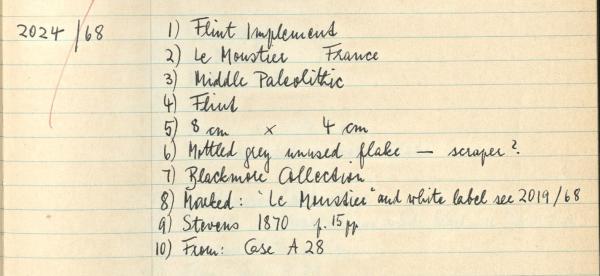 2024/68 1) Flint Implement
2) Le Moustier France
3) Middle Paleolithic
4) Flint
5) 8 cm x 4 cm
6) Mottled grey unused flake — scraper?
7) Blackmore Collection
8) Marked: "Le Moustier" and white label see 2019/68
9) Stevens 1870 p. 15pp
10) From: Case A 28